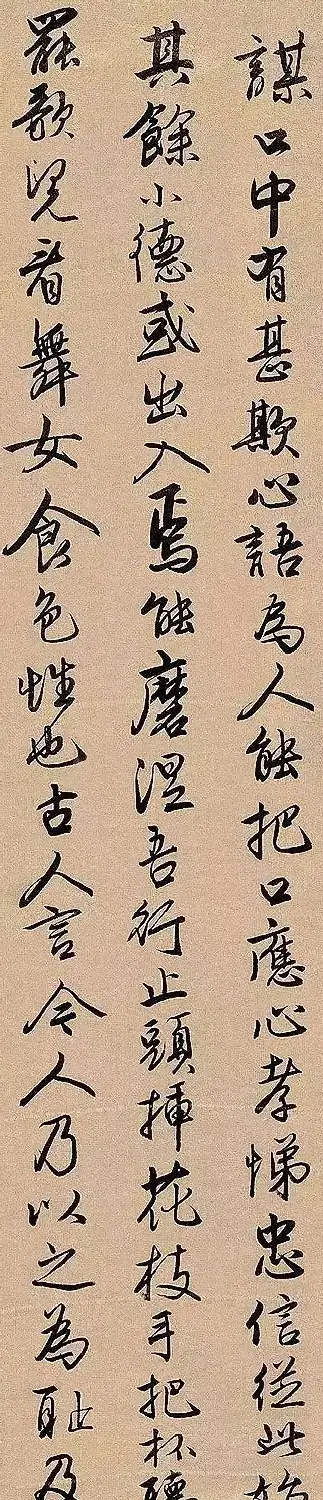 謀口中有甚欺心語為人能把口應心孝悌忠信從此始
其餘小德或出入焉能磨涅吾行止頭插花枝手把杯聽
罷歌兒看舞女食色性也古人言今人乃以之為耻及